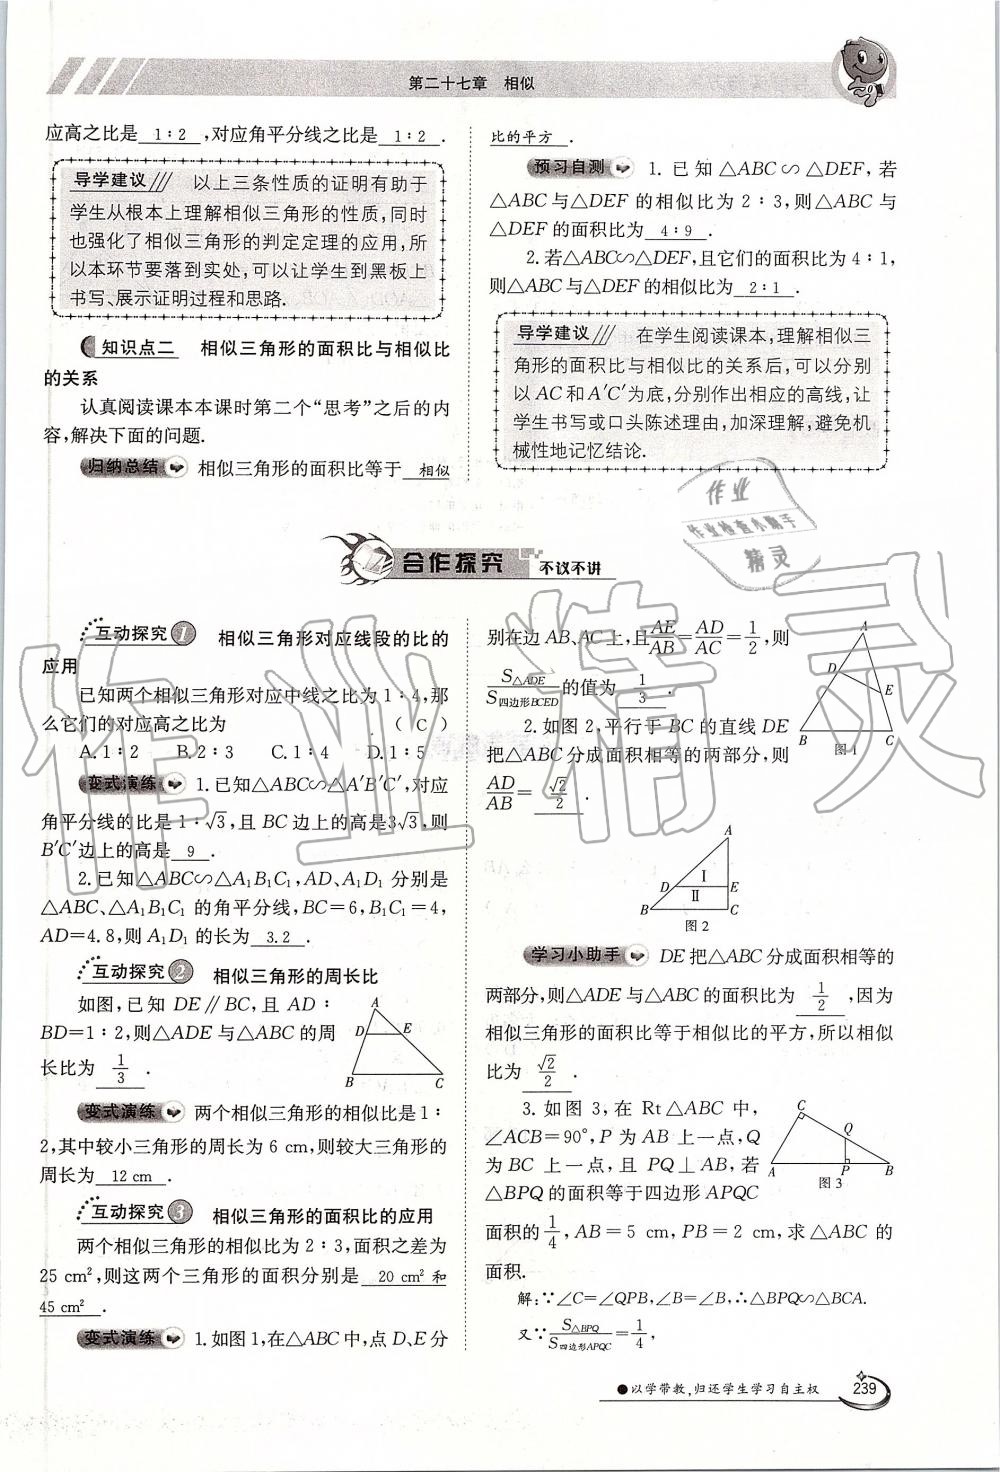 第二十七章　相似
应高之比是 1∶2 ,对应角平分线之比是 1∶2 .
导学建议 以上三条性质的证明有助于
学生从根本上理解相似三角形的性质,同时
也强化了相似三角形的判定定理的应用,所
以本环节要落到实处,可以让学生到黑板上
书写、展示证明过程和思路.
知识点二　相似三角形的面积比与相似比
的关系
认真阅读课本本课时第二个“思考”之后的内
容,解决下面的问题.
归纳总结 相似三角形的面积比等于 相似
比的平方 .
预习自测 1. 已知△ABC∽△DEF,若
△ABC与△DEF的相似比为2∶3,则△ABC与
△DEF的面积比为 4∶9 .
2.若△ABC∽△DEF,且它们的面积比为4∶1,
则△ABC与△DEF的相似比为 2∶1 .
导学建议 在学生阅读课本,理解相似三
角形的面积比与相似比的关系后,可以分别
以AC和A′C′为底,分别作出相应的高线,让
学生书写或口头陈述理由,加深理解,避免机
械性地记忆结论.
合作探究 不议不讲
互动探究1 相似三角形对应线段的比的
应用
已知两个相似三角形对应中线之比为1∶4,那
么它们的对应高之比为 ( C )
A.1∶2 B.2∶3 C.1∶4 D.1∶5
变式演练 1.已知△ABC∽△A′B′C′,对应
角平分线的比是1∶√3,且BC边上的高是3√3,则
B′C′边上的高是 9 .
2.已知△ABC∽△A₁B₁C₁,AD、A₁D₁分别是
△ABC、△A₁B₁C₁的角平分线,BC=6,B₁C₁=4,
AD=4.8,则A₁D₁的长为 3.2 .
互动探究2 相似三角形的周长比
如图,已知DE∥BC,且AD∶
BD=1∶2,则△ADE与△ABC的周
长比为 1/3 .
A
D E
B C
变式演练 两个相似三角形的相似比是1∶
2,其中较小三角形的周长为6 cm,则较大三角形的
周长为 12 cm .
互动探究3 相似三角形的面积比的应用
两个相似三角形的相似比为2∶3,面积之差为
25 cm²,则这两个三角形的面积分别是 20 cm²和
45 cm² .
变式演练 1.如图1,在△ABC中,点D、E分
别在边AB、AC上,且AE/AB=AD/AC=1/2,则
S△ADE/S四边形BCED的值为 1/3 .
A
D
E
B C
图1
2.如图2,平行于BC的直线DE
把△ABC分成面积相等的两部分,则
AD/AB= √2/2 .
A
Ⅰ
D E
Ⅱ
B C
图2
学习小助手 DE把△ABC分成面积相等的
两部分,则△ADE与△ABC的面积比为 1/2 ,因为
相似三角形的面积比等于相似比的平方,所以相似
比为 √2/2 .
3. 如图3,在Rt△ABC中,
∠ACB=90°,P为AB上一点,Q
为BC上一点,且PQ⊥AB,若
△BPQ的面积等于四边形APQC
面积的1/4,AB=5 cm,PB=2 cm,求△ABC的
面积.
C
Q
A P B
图3
解:∵∠C=∠QPB,∠B=∠B,∴△BPQ∽△BCA.
又∵S△BPQ/S四边形APQC=1/4,
●以学带教,归还学生学习自主权
239
作业
作业检查小助手
精灵
作业精灵